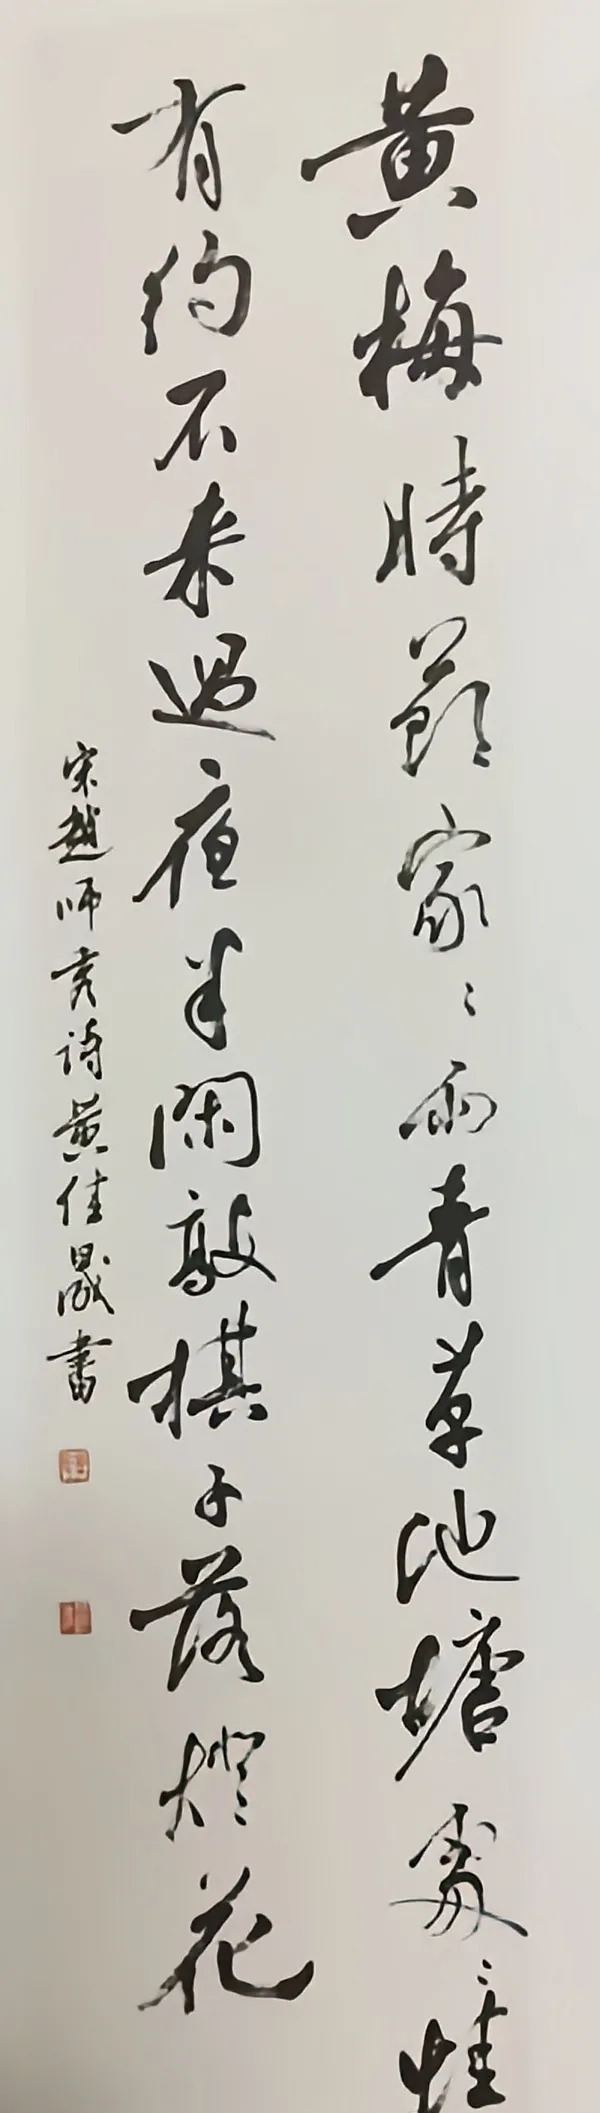 黄梅時節家〻雨青草池塘處〻蛙
有約不来過夜半閑敲棋子落燈花
宋趙师秀诗黄佳晟書